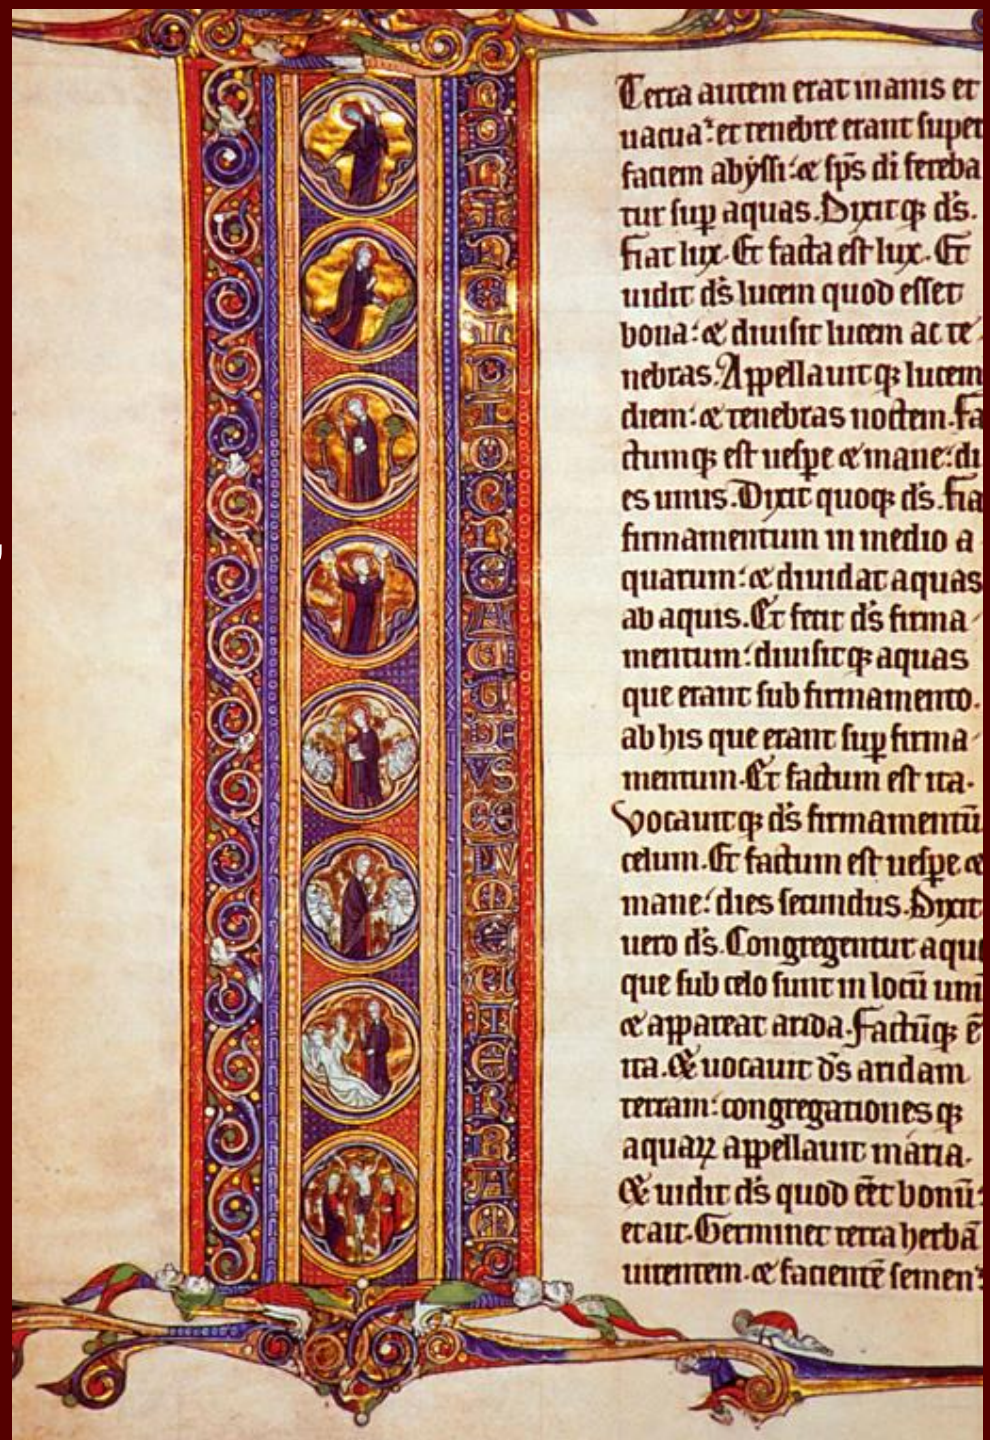 IN PRINCIPIO CREAUIT DEVS CELVM ET TERRAM
Terra autem erat inanis et
uacua: et tenebre erant super
faciem abyssi: & sp̄s dī fereba
tur suꝑ aquas. Dixitqꝫ ds̄.
Fiat lux. Et facta est lux. Et
uidit ds̄ lucem quod esset
bona: & diuisit lucem ac te
nebras. Appellauitqꝫ lucem
diem: & tenebras noctem. Fa
ctumqꝫ est uesꝑe & mane: di
es unus. Dixit quoqꝫ ds̄. Fia
firmamentum in medio a
quarum: & diuidat aquas
ab aquis. Et fecit ds̄ firma
mentum: diuisitqꝫ aquas
que erant sub firmamento.
ab his que erant suꝑ firma
mentum. Et factum est ita.
Vocauitqꝫ ds̄ firmamentū
celum. Et factum est uesꝑe &
mane: dies secundus. Dixit
uero ds̄. Congregentur aque
que sub celo sunt in locū unū
& appareat arida. Factūqꝫ ē
ita. & uocauit ds̄ aridam
terram: congregationesqꝫ
aquaꝝ appellauit maria.
& uidit ds̄ quod eēt bonū:
et ait. Germinet terra herbā
uirentem. & facientē semen: